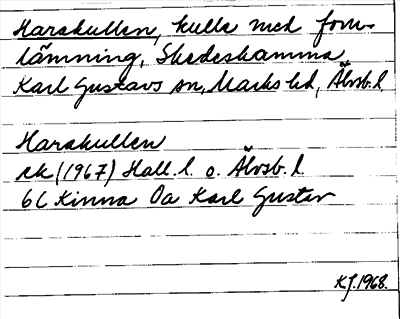 Harakullen, kulle med forn-
lämning, Skedeskamma
Karl Gustavs sn, Marks hd, Älvsb. l.
Harakullen
ek (1967) Hall. l. o. Älvsb. l
6C Kinna 0a Karl Gustav
KJ. 1968.